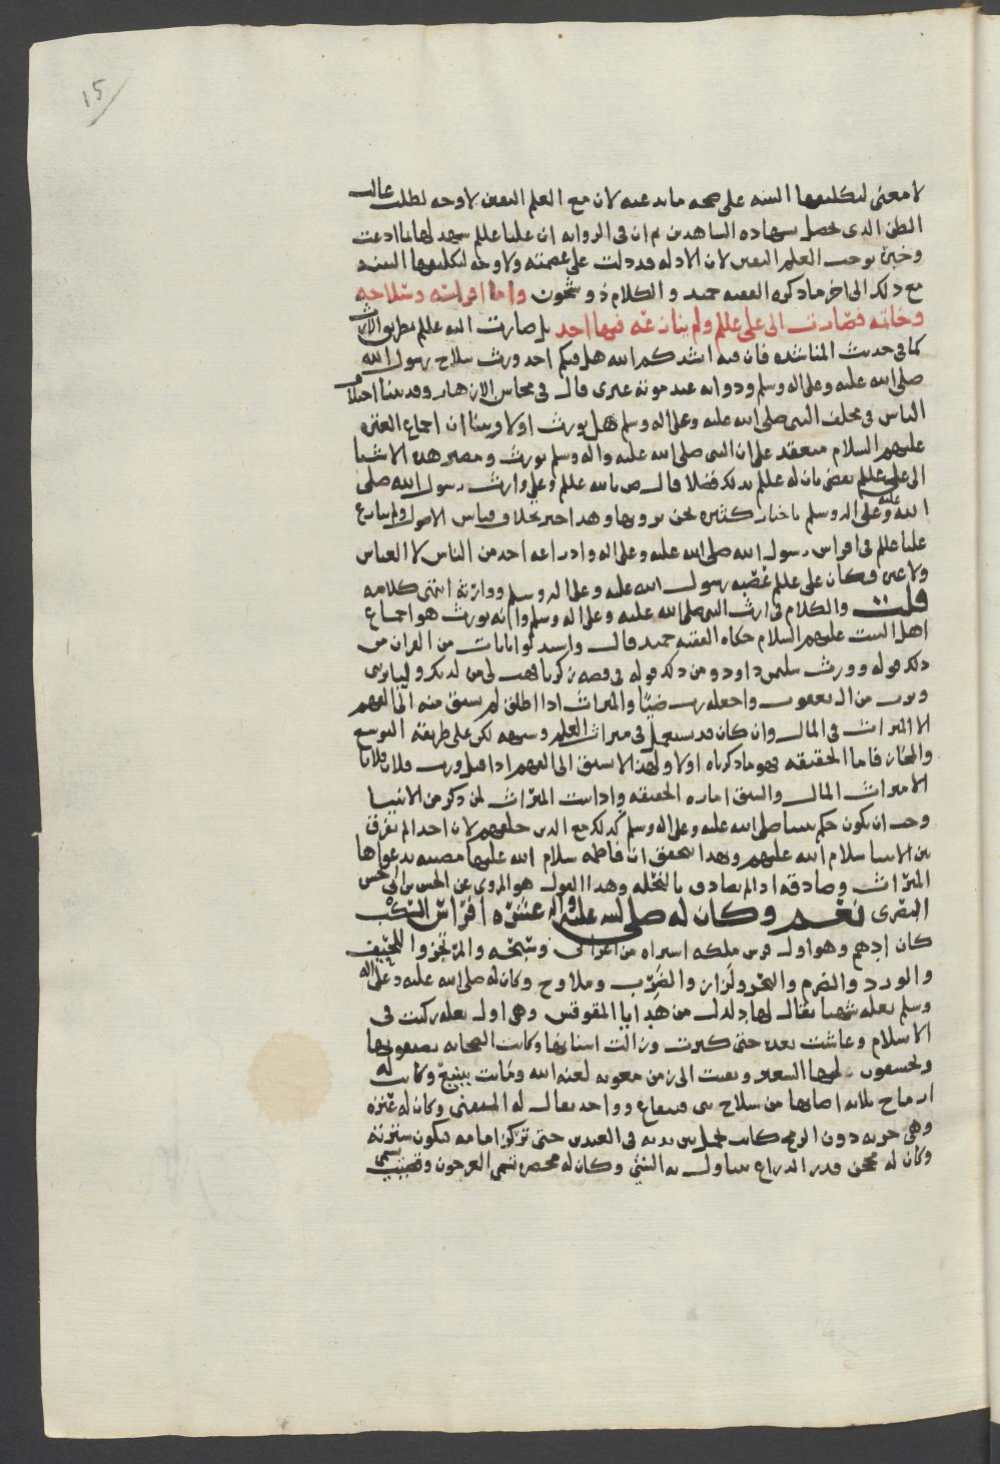 ١٥
لا معنى لتكليفها البينه على صحه ما تدعيه لان مع العلم اليقين لا وجه لطلب غالب
الظن الذى يحصل بشهاده الشاهدين ثم ان فى الروايه ان عليا عللم شهد لها بما ادعت
وخبره يوجب العلم اليقين لان الادله قد دلت على عصمته ولا وجه لتكليفها البينه
مع ذلك الى اخر ما ذكره الفقيه حميد والكلام ذو شجون واما افراسه وسلاحه
وخاتمه فصارت الى على عللم ولم ينازعه فيها احد بل صارت اليه عللم بطريق الارث
كما فى حديث المناشده فان فيه انشدكم الله هل فيكم احد ورث سلاح رسول الله
صلى الله عليه وعلى اله وسلم ودوابه عند موته غيرى قال فى محاسن الازهار وقد بينا اختلاف
الناس فى مخلف النبى صلى الله عليه وعلى اله وسلم هل يورث اولا وبينا ان اجماع العتره
عليهم السلام منعقد على ان النبى صلى الله عليه واله وسلم يورث ومصير هذه الاشيا
الى على عللم يقضى بان له عللم بذلك فضلا قال ص بالله عللم وعلى وارث رسول الله صلى
الله عليه وعلى اله وسلم باخبار كثيره نحن نرويها وهذا خبر بخلاف قياس الاصول ولم ينازع
عليا عللم فى افراس رسول الله صلى الله عليه وعلى اله وادراعه احد من الناس لا العباس
ولا غيره وكان على عللم عصبه رسول الله عليه وعلى اله وسلم ووارثه انتهى كلامه
قلت والكلام فى ارث النبى صلى الله عليه وعلى اله وسلم وانه يورث هو اجماع
اهل البيت عليهم السلام حكاه الفقيه حميد قال واستدلوا بايات من القران من
ذلك قوله وورث سليمن داود ومن ذلك قوله فى قصه زكريا فهب لى من لدنك وليا يرثنى
ويرث من ال يعقوب واجعله رب رضيا والميراث اذا اطلق لم يسبق منه الى الفهم
الا الميراث فى المال وان كان قد يستعمل فى ميراث العلم وشبهه لكن على طريقه التوسع
والمجاز فاما الحقيقه فهو ما ذكرناه اولا ولهذا لا يسبق الى الفهم اذا قيل ورث فلان فلانا
الا ميراث المال والسبق اماره الحقيقه واذا ثبت الميراث لمن ذكر من الانبيا
وجب ان يكون حكم نبينا صلى الله عليه وعلى اله وسلم كذلك مع الذين خلفهم لان احدا لم يفرق
بين الانبيا سلام الله عليهم وبهذا يتحقق ان فاطمه سلام الله عليها مصيبه بدعواها
الميراث وصادقه اذا لم يصادق بالنحله وهذا القول هو المروى عن الحسن بن ابى الحسن
البصرى نعم وكان له صلى الله عليه واله عشره افراس السكب
كان ادهم وهو اول فرس ملكه اشتراه من اعرابى وسبحه والمرتجز واللحيف
والورد والضرم والبحر ولزاز والضرب وملاوح وكان له صلى الله عليه وعلى اله
وسلم بغله شهبا يقال لها دلدل من هدايا المقوقس وهى اول بغله ركبت فى
الاسلام وعاشت بعده حتى كبرت وزالت اسنانها وكانت الصحابه يصعونها
ويحسون لها الشعير وبقيت الى زمن معويه لعنه الله وماتت بينبع وكانت له
ارماح ثلاثه اصابها من سلاح بنى قينقاع وواحد يقال له المثنى وكان له عنزه
وهى حربه دون الرمح كانت تحمل بين يديه فى العيدين حتى تركز امامه فتكون سترته
وكان له محجن قدر الذراع يتناول به الشئ وكان له مخصره تسمى العرجون وقضيب يسمى